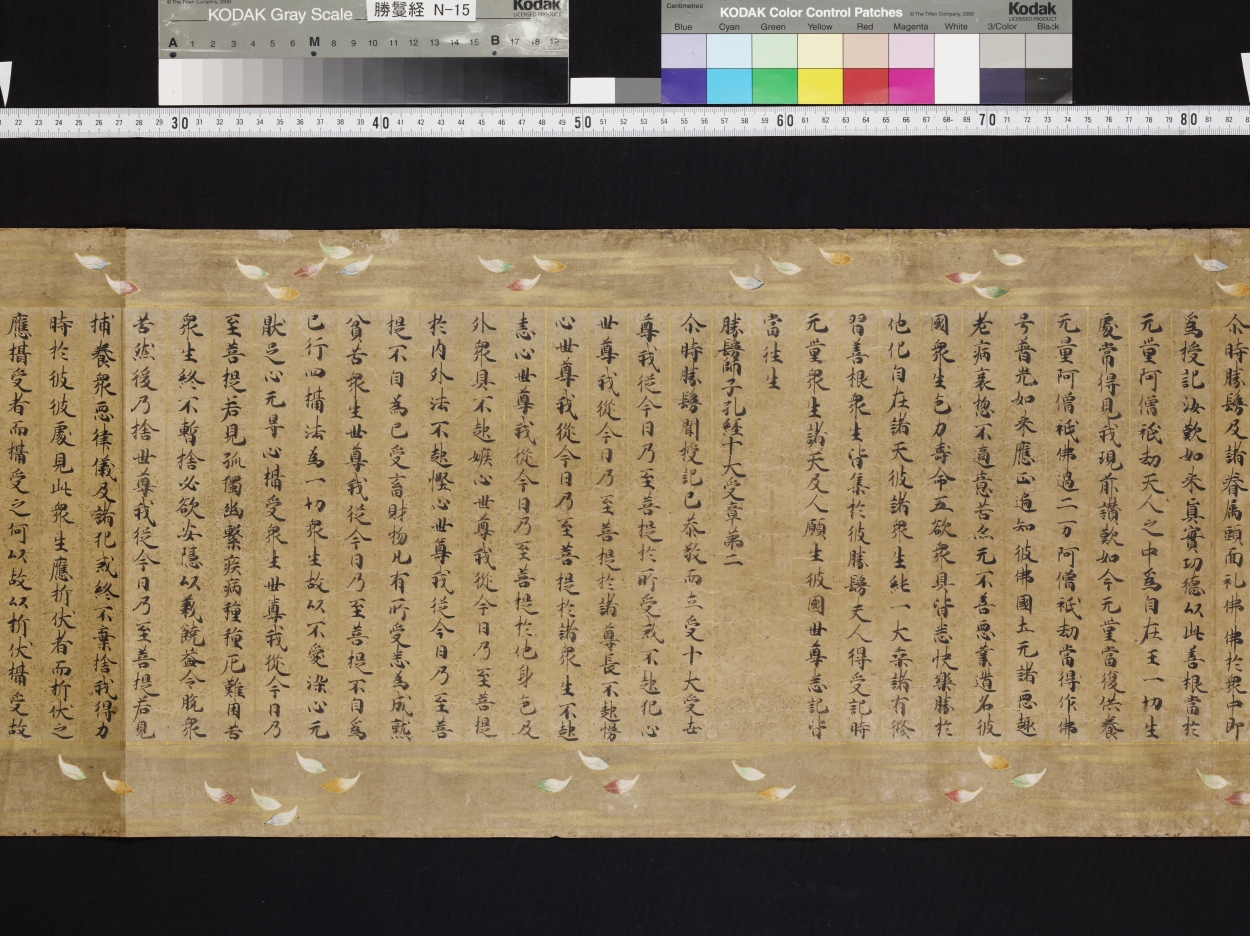 © The Tiffen Company, 2000
KODAK Gray Scale
Kodak
LICENSED PRODUCT
勝鬘経 N-15
A 1 2 3 4 5 6 M 8 9 10 11 12 13 14 15 B 17 18 19
Centimetres
KODAK Color Control Patches
© The Tiffen Company, 2000
Kodak
LICENSED PRODUCT
Blue Cyan Green Yellow Red Magenta White 3/Color Black
22 23 24 25 26 27 28 29 30 31 32 33 34 35 36 37 38 39 40 41 42 43 44 45 46 47 48 49 50 51 52 53 54 55 56 57 58 59 60 61 62 63 64 65 66 67 68 69 70 71 72 73 74 75 76 77 78 79 80 81 82
尒時勝鬘及諸眷属頭面礼佛佛於衆中即
為授記汝歎如来真實功德以此善根當於
元量阿僧祇劫天人之中為自在王一切生
處常得見我現前讃歎如今元量當復供養
元量阿僧祇佛過二万阿僧祇劫當得作佛
号普光如来應正遍知彼佛國土元諸悪趣
老病衰惚不適意苦亦元不善悪業道名彼
國衆生色力壽命五欲衆具皆悉快樂勝於
他化自在諸天彼諸衆生純一大乗諸有修
習善根衆生皆集於彼勝鬘夫人得受記時
元量衆生諸天及人願生彼國世尊悉記皆
當往生
勝鬘師子孔経十大受章第二
尒時勝鬘聞授記已恭敬而立受十大受
尊我従今日乃至菩提於所受戒不起犯心
世尊我従今日乃至菩提於諸尊長不起慢
心世尊我従今日乃至菩提於諸衆生不起
恚心世尊我従今日乃至菩提於他身色及
外衆具不起嫉心世尊我従今日乃至菩提
於内外法不起慳心世尊我従今日乃至菩
提不自為已受畜財物凡有所受悉為成熟
貧苦衆生世尊我従今日乃至菩提不自為
已行四攝法為一切衆生故以不愛染心元
猒足心元导心攝受衆生世尊我従今日乃
至菩提若見孤獨幽繋疾病種種厄難困苦
衆生終不暫捨必欲安隠以義饒益令脱衆
苦然後乃捨世尊我従今日乃至菩提若見
捕養衆悪律儀及諸犯戒終不棄捨我得力
時於彼彼處見此衆生應折伏者而折伏之
應攝受者而攝受之何以故以折伏攝受故